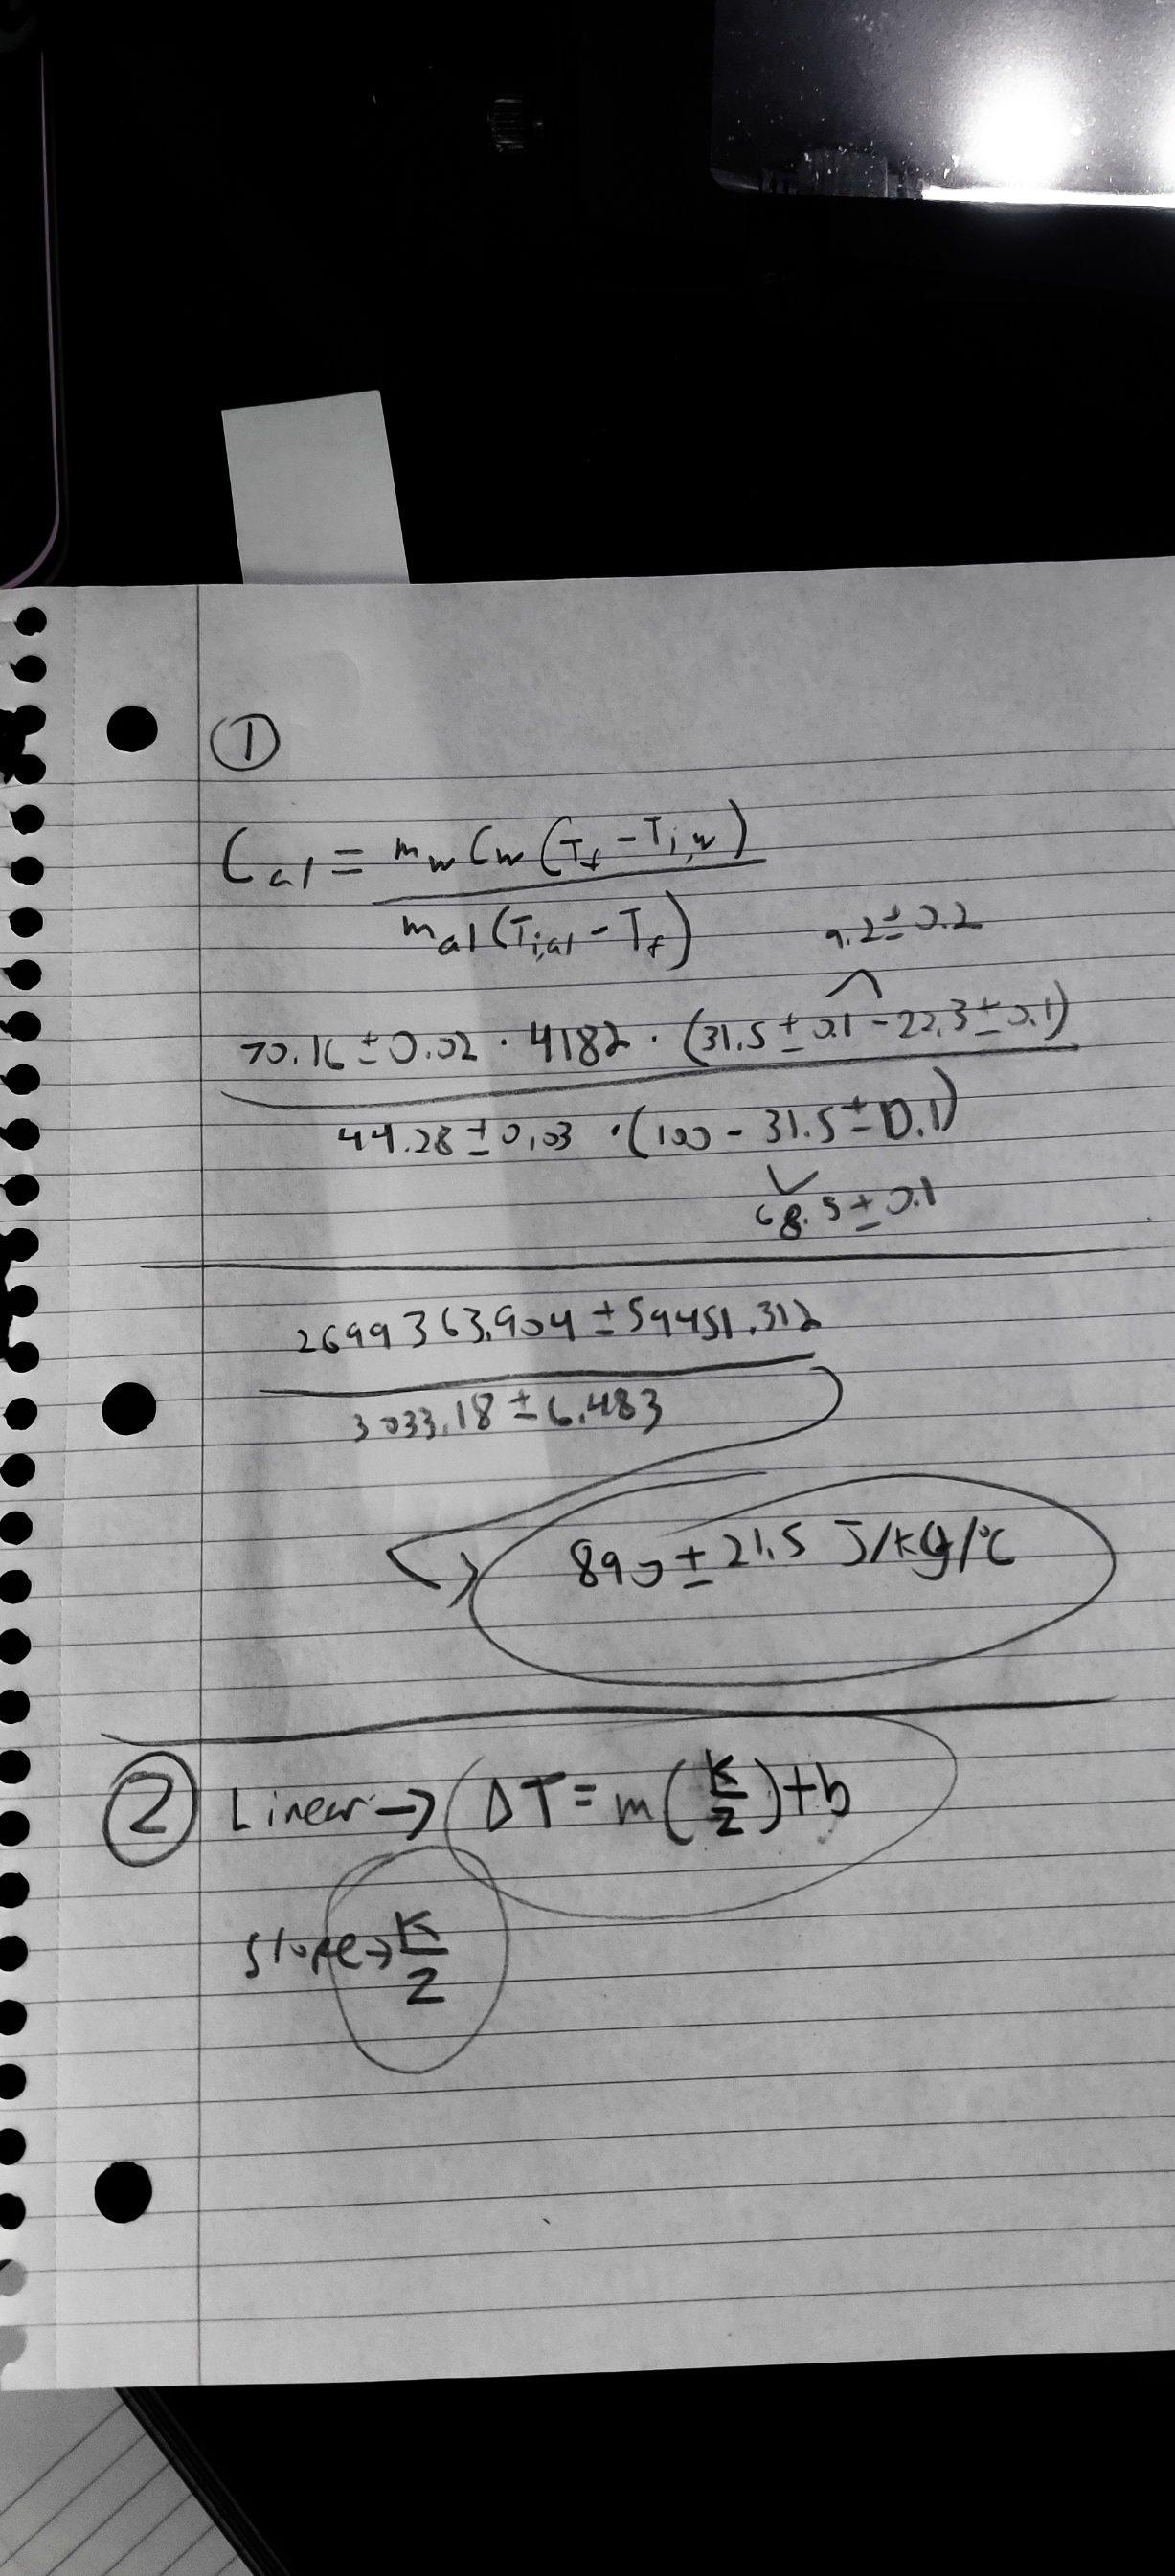 ①
Cal = mw Cw (Tf - Ti,w)
mal (Ti,al - Tf)
9.2 ± 0.2
70.16 ± 0.02 · 4182 · (31.5 ± 0.1 - 22.3 ± 0.1)
44.28 ± 0.03 · (100 - 31.5 ± 0.1)
68.5 ± 0.1
2699363.904 ± 59451.312
3033.18 ± 6.483
890 ± 21.5 J/kg/°C
② Linear → ΔT = m(K/2) + b
Slope → K/2